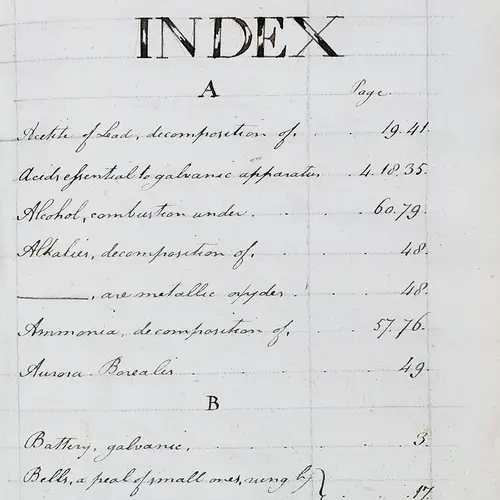 INDEX
A
Page.
Acetite of Lead, decomposition of, 19. 41.
Acids essential to galvanic apparatus 4. 18. 35.
Alcohol, combustion under, 60. 79.
Alkalies, decomposition of, 48.
———, are metallic oxydes 48.
Ammonia, decomposition of, 57. 76.
Aurora Borealis 49.
B
Battery, galvanic, 3.
Bells, a peal of small ones, rung by } 17